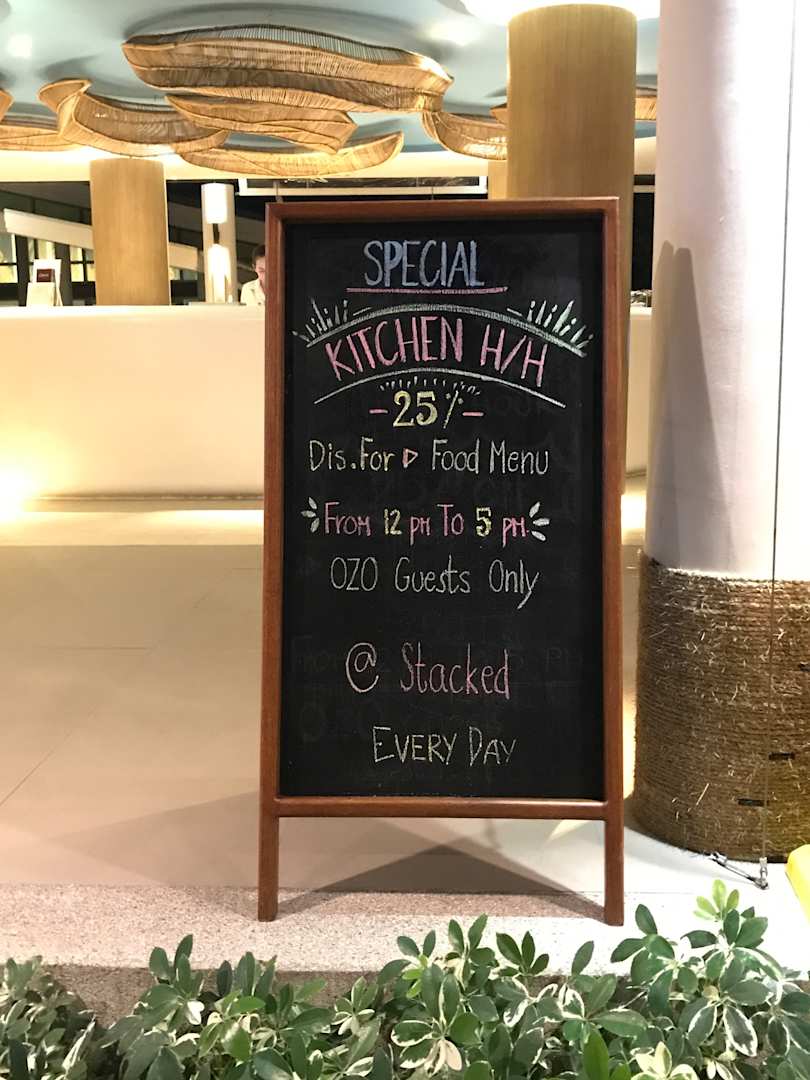 SPECIAL
KITCHEN H/H
-25%-
Dis.For ▷ Food Menu
From 12 pm To 5 pm.
OZO Guests Only
@ Stacked
EVERY DAY